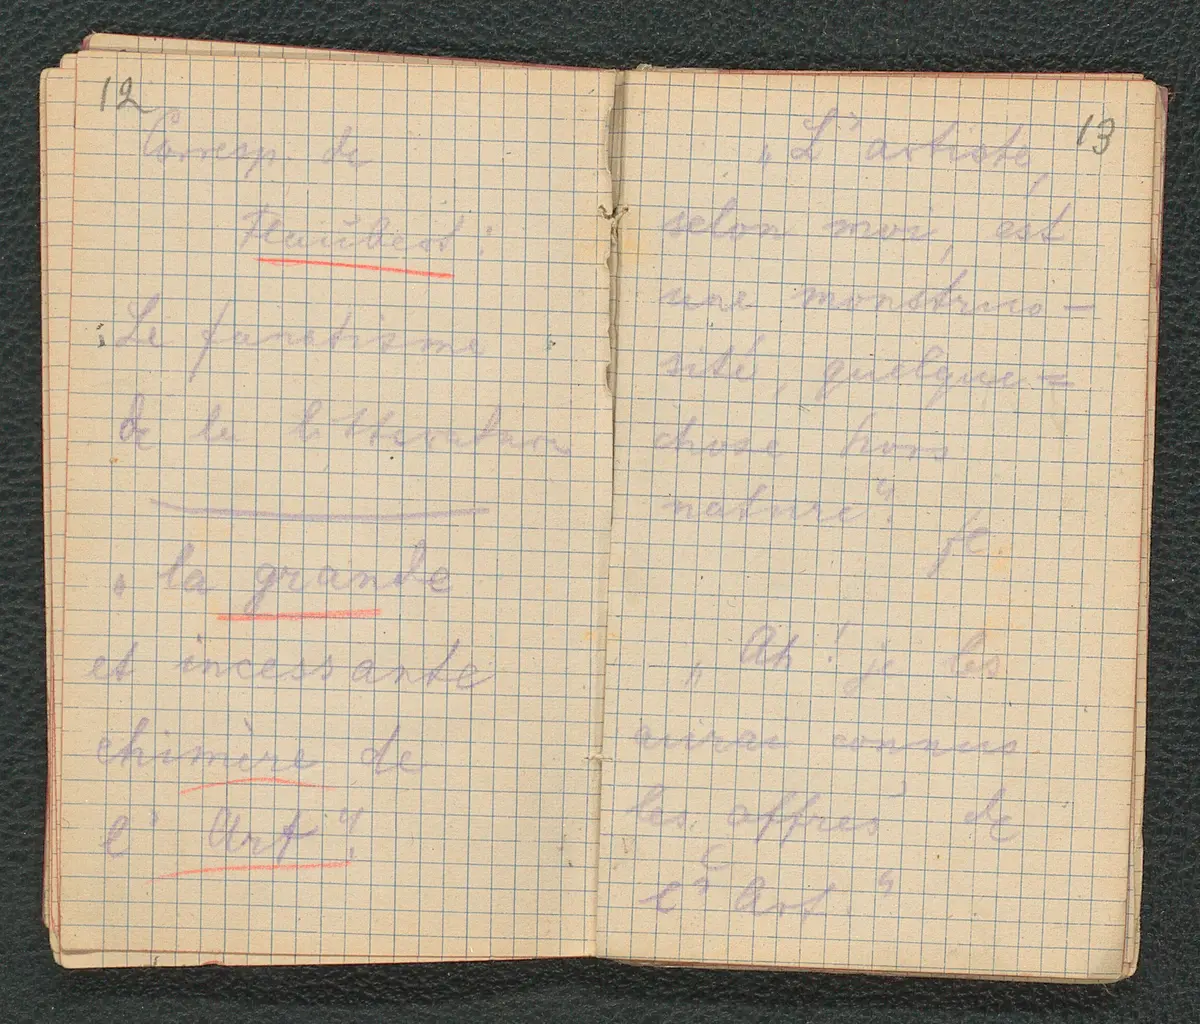 12
Corresp. de
Flaubert:
Le fanatisme
de la litterature
„la grande
et incessante
chimère de
l'Art".
13
„L'artiste,
selon moi, est
une monstruo-
sité, quelque=
chose hors
nature".
„Ah! je les
aurai connus
les affres de
l'Art."